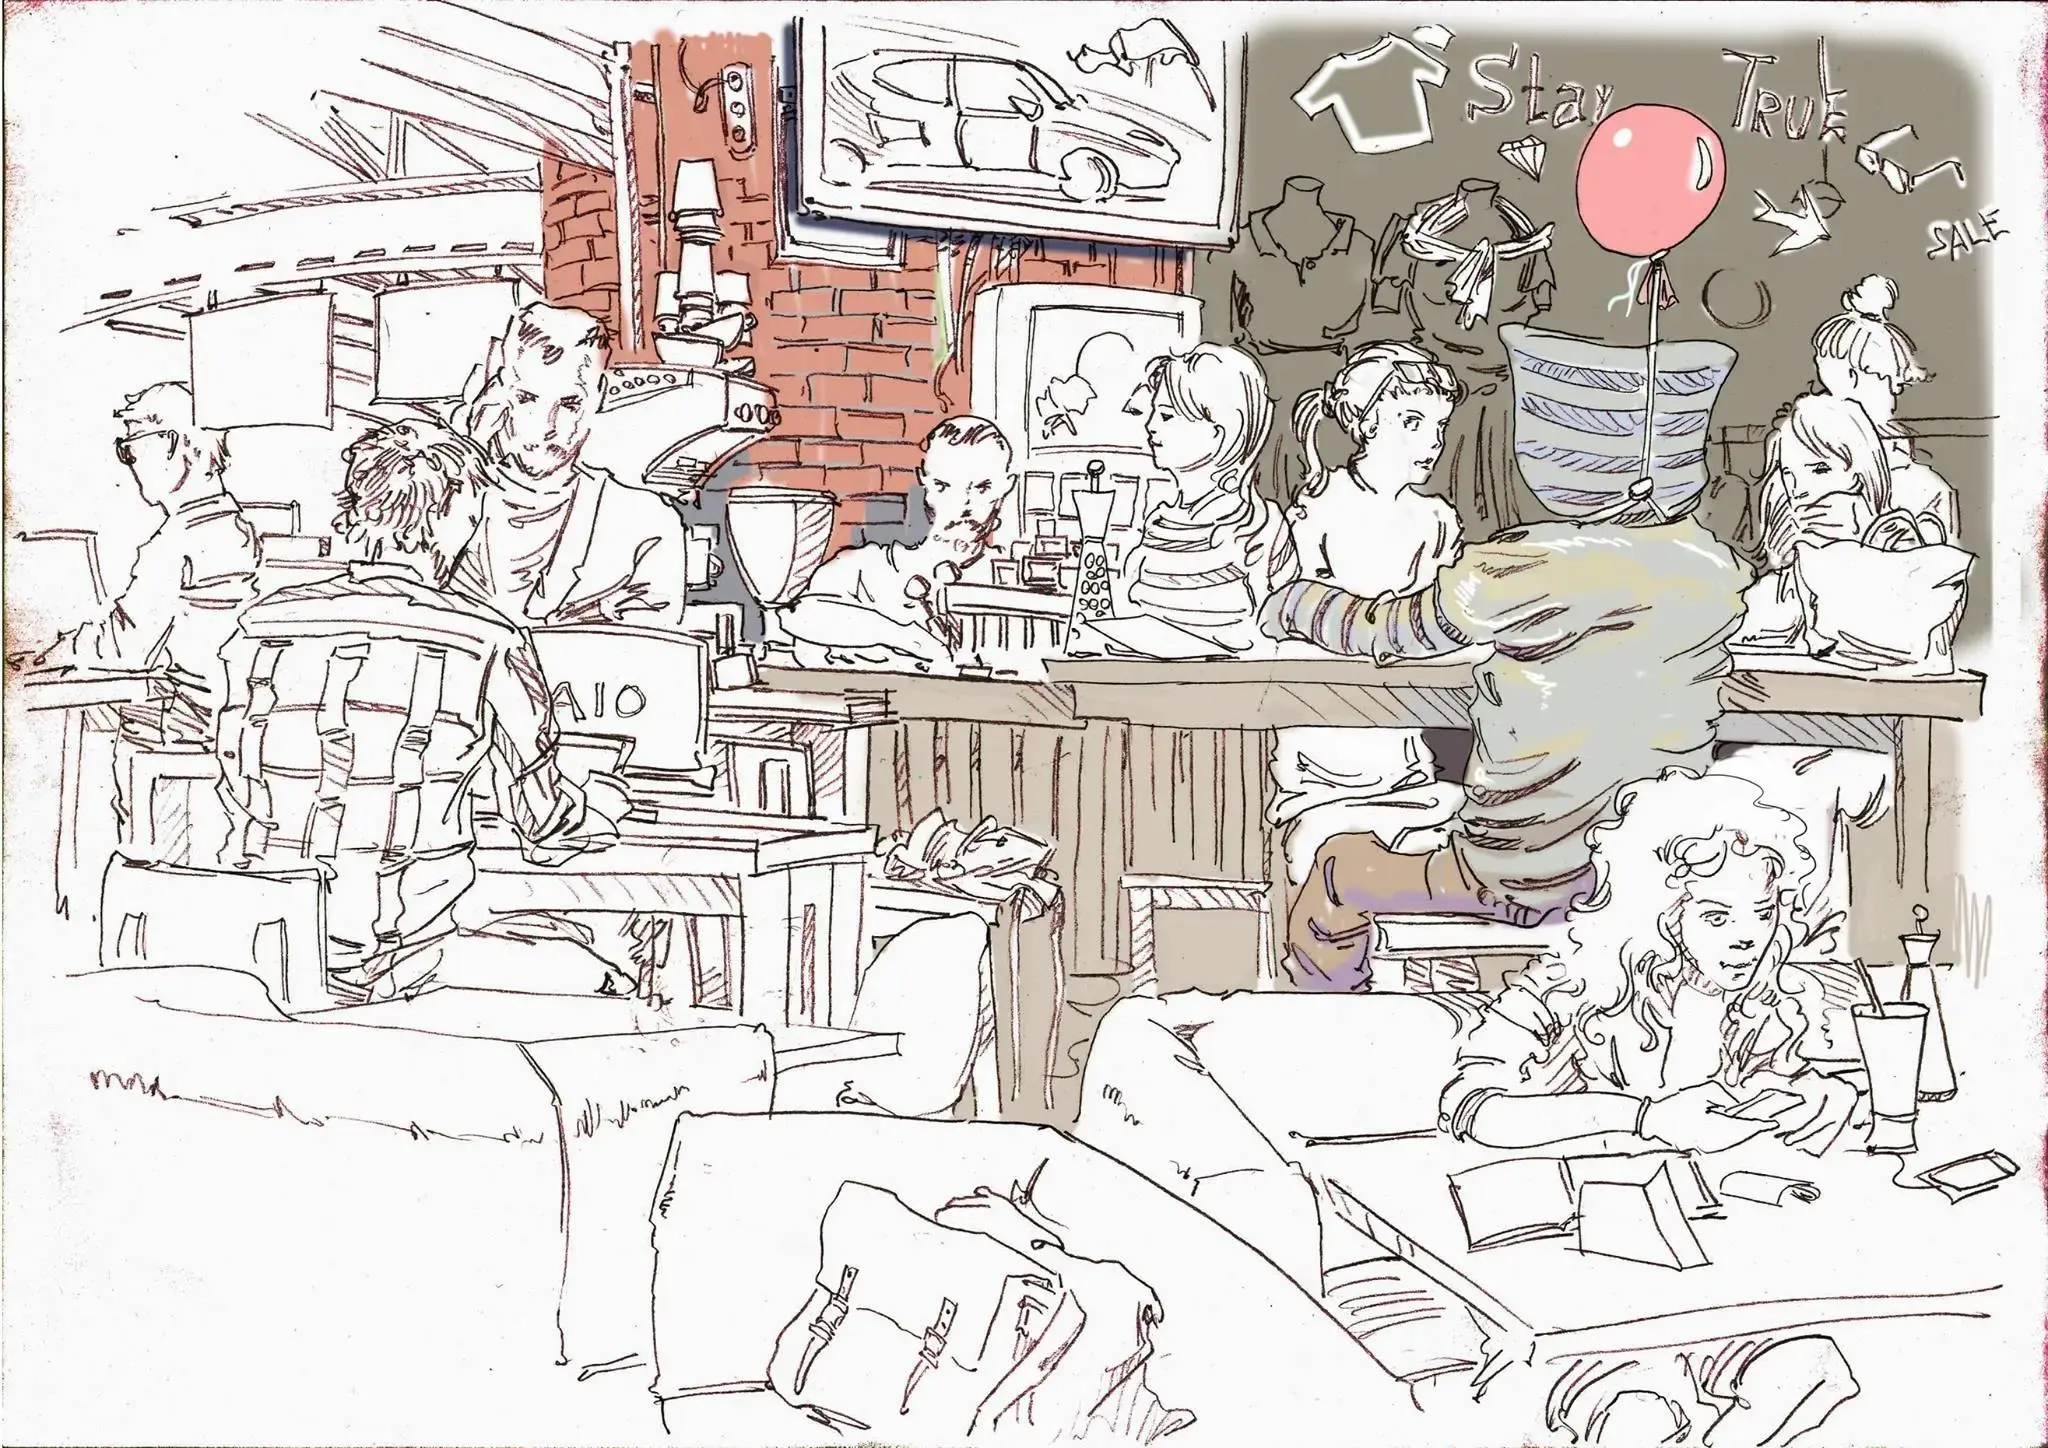 Stay TRUE
SALE
AIO